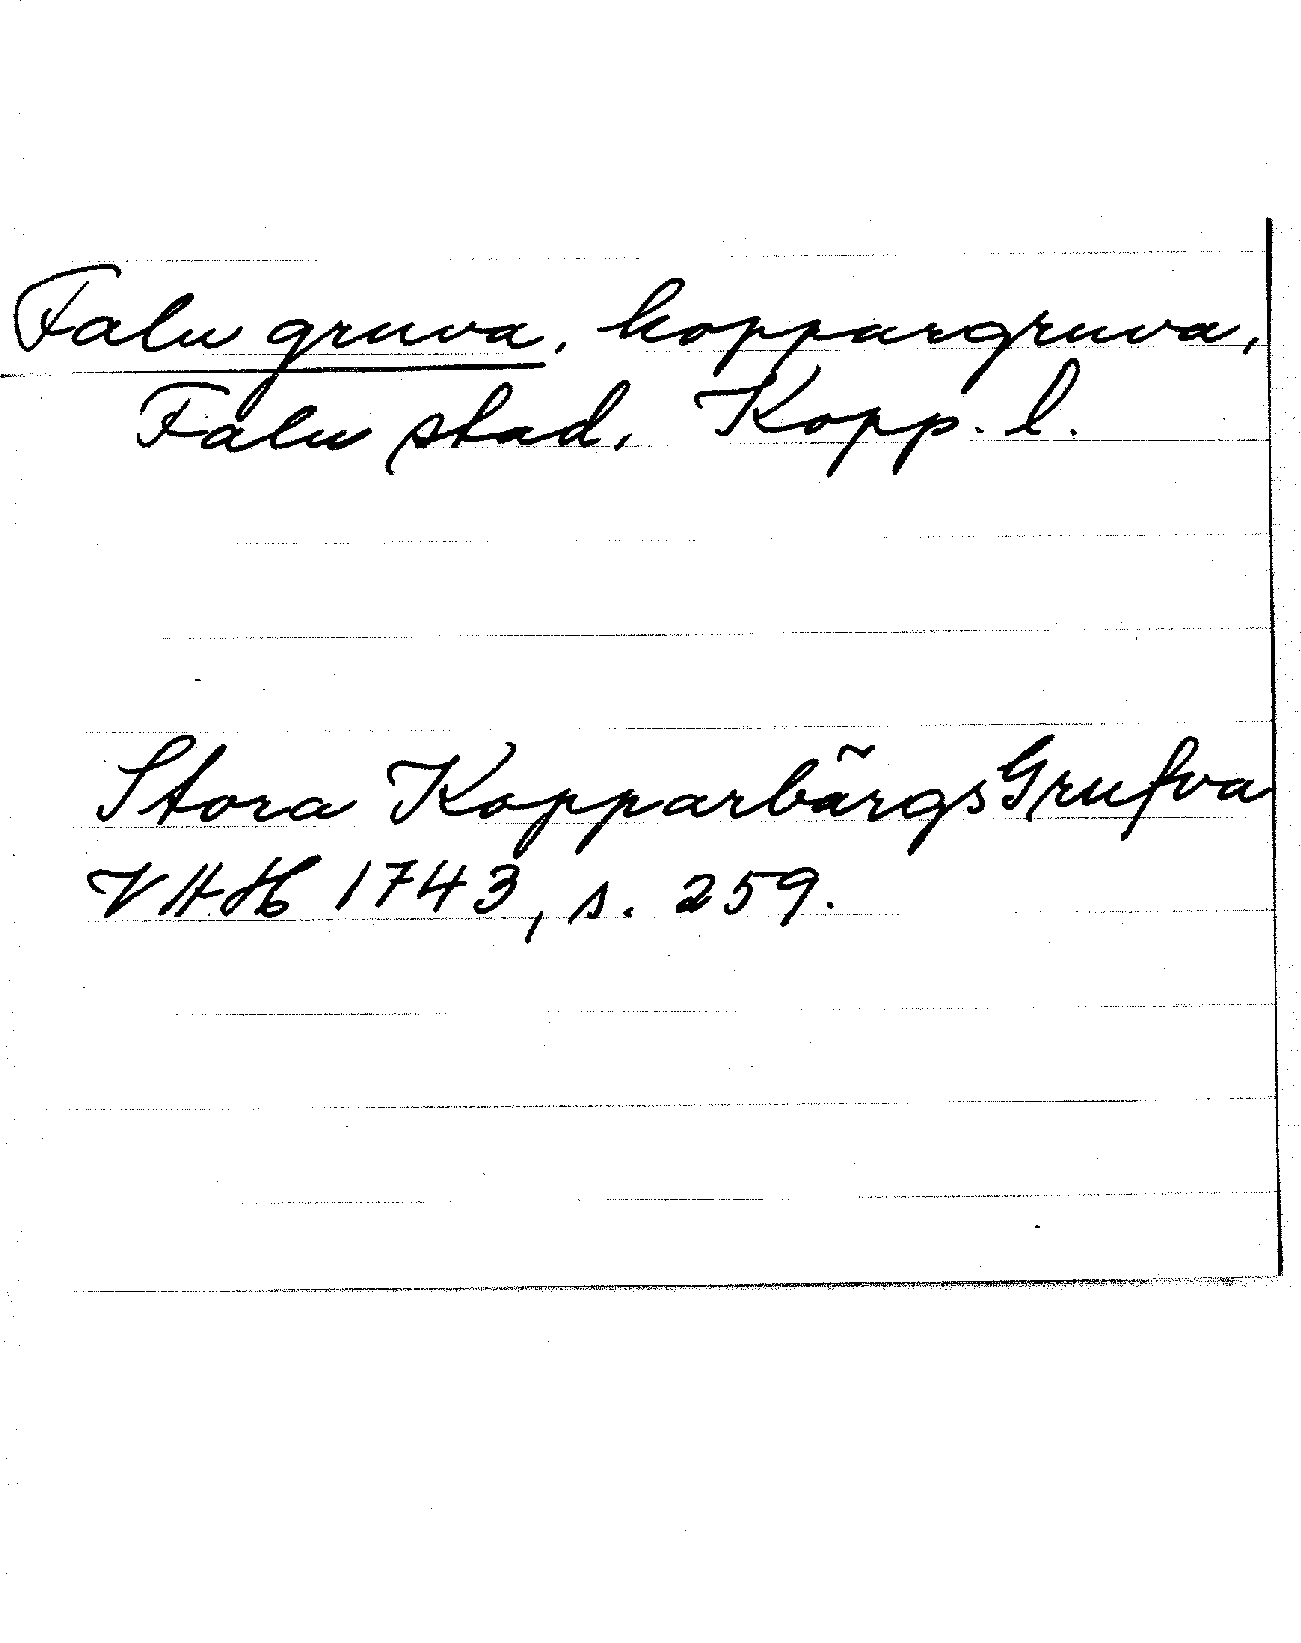 Falu gruva, koppargruva,
Falu stad, Kopp. l.
Stora Kopparbãrgs Grufva
VAH 1743, s. 259.